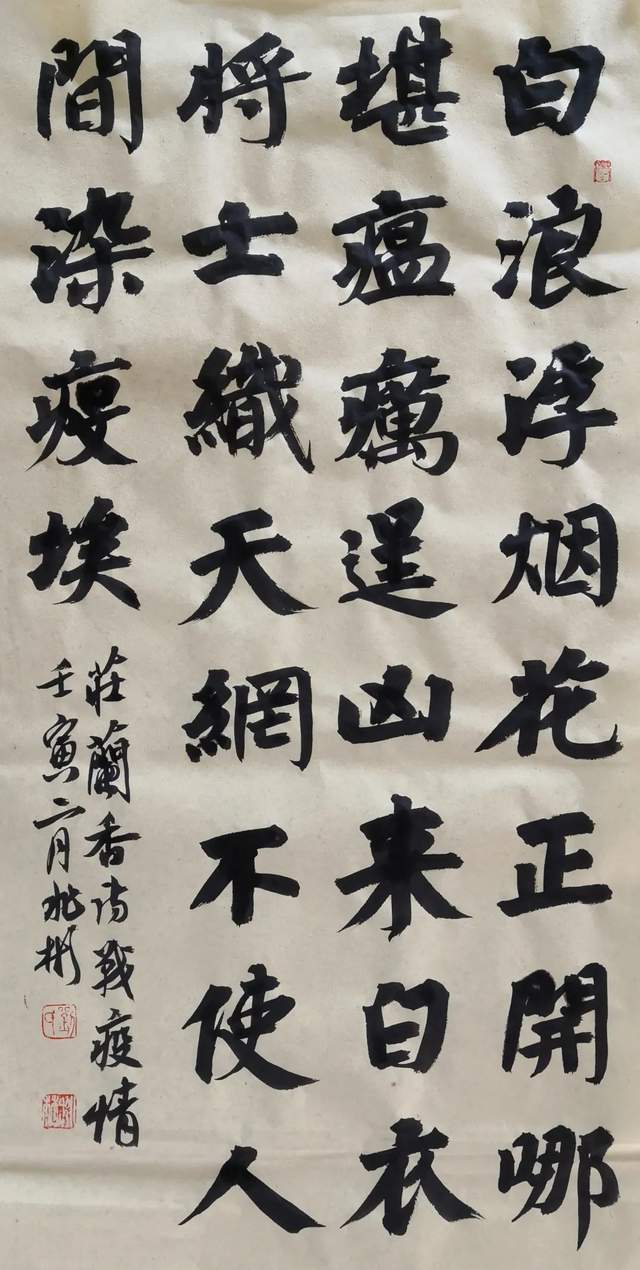 白浪浮烟花正開哪
堪瘟癘逞凶来白衣
将士織天網不使人
間染疫埃
莊蘭香詩戰疫情
壬寅二月兆彬